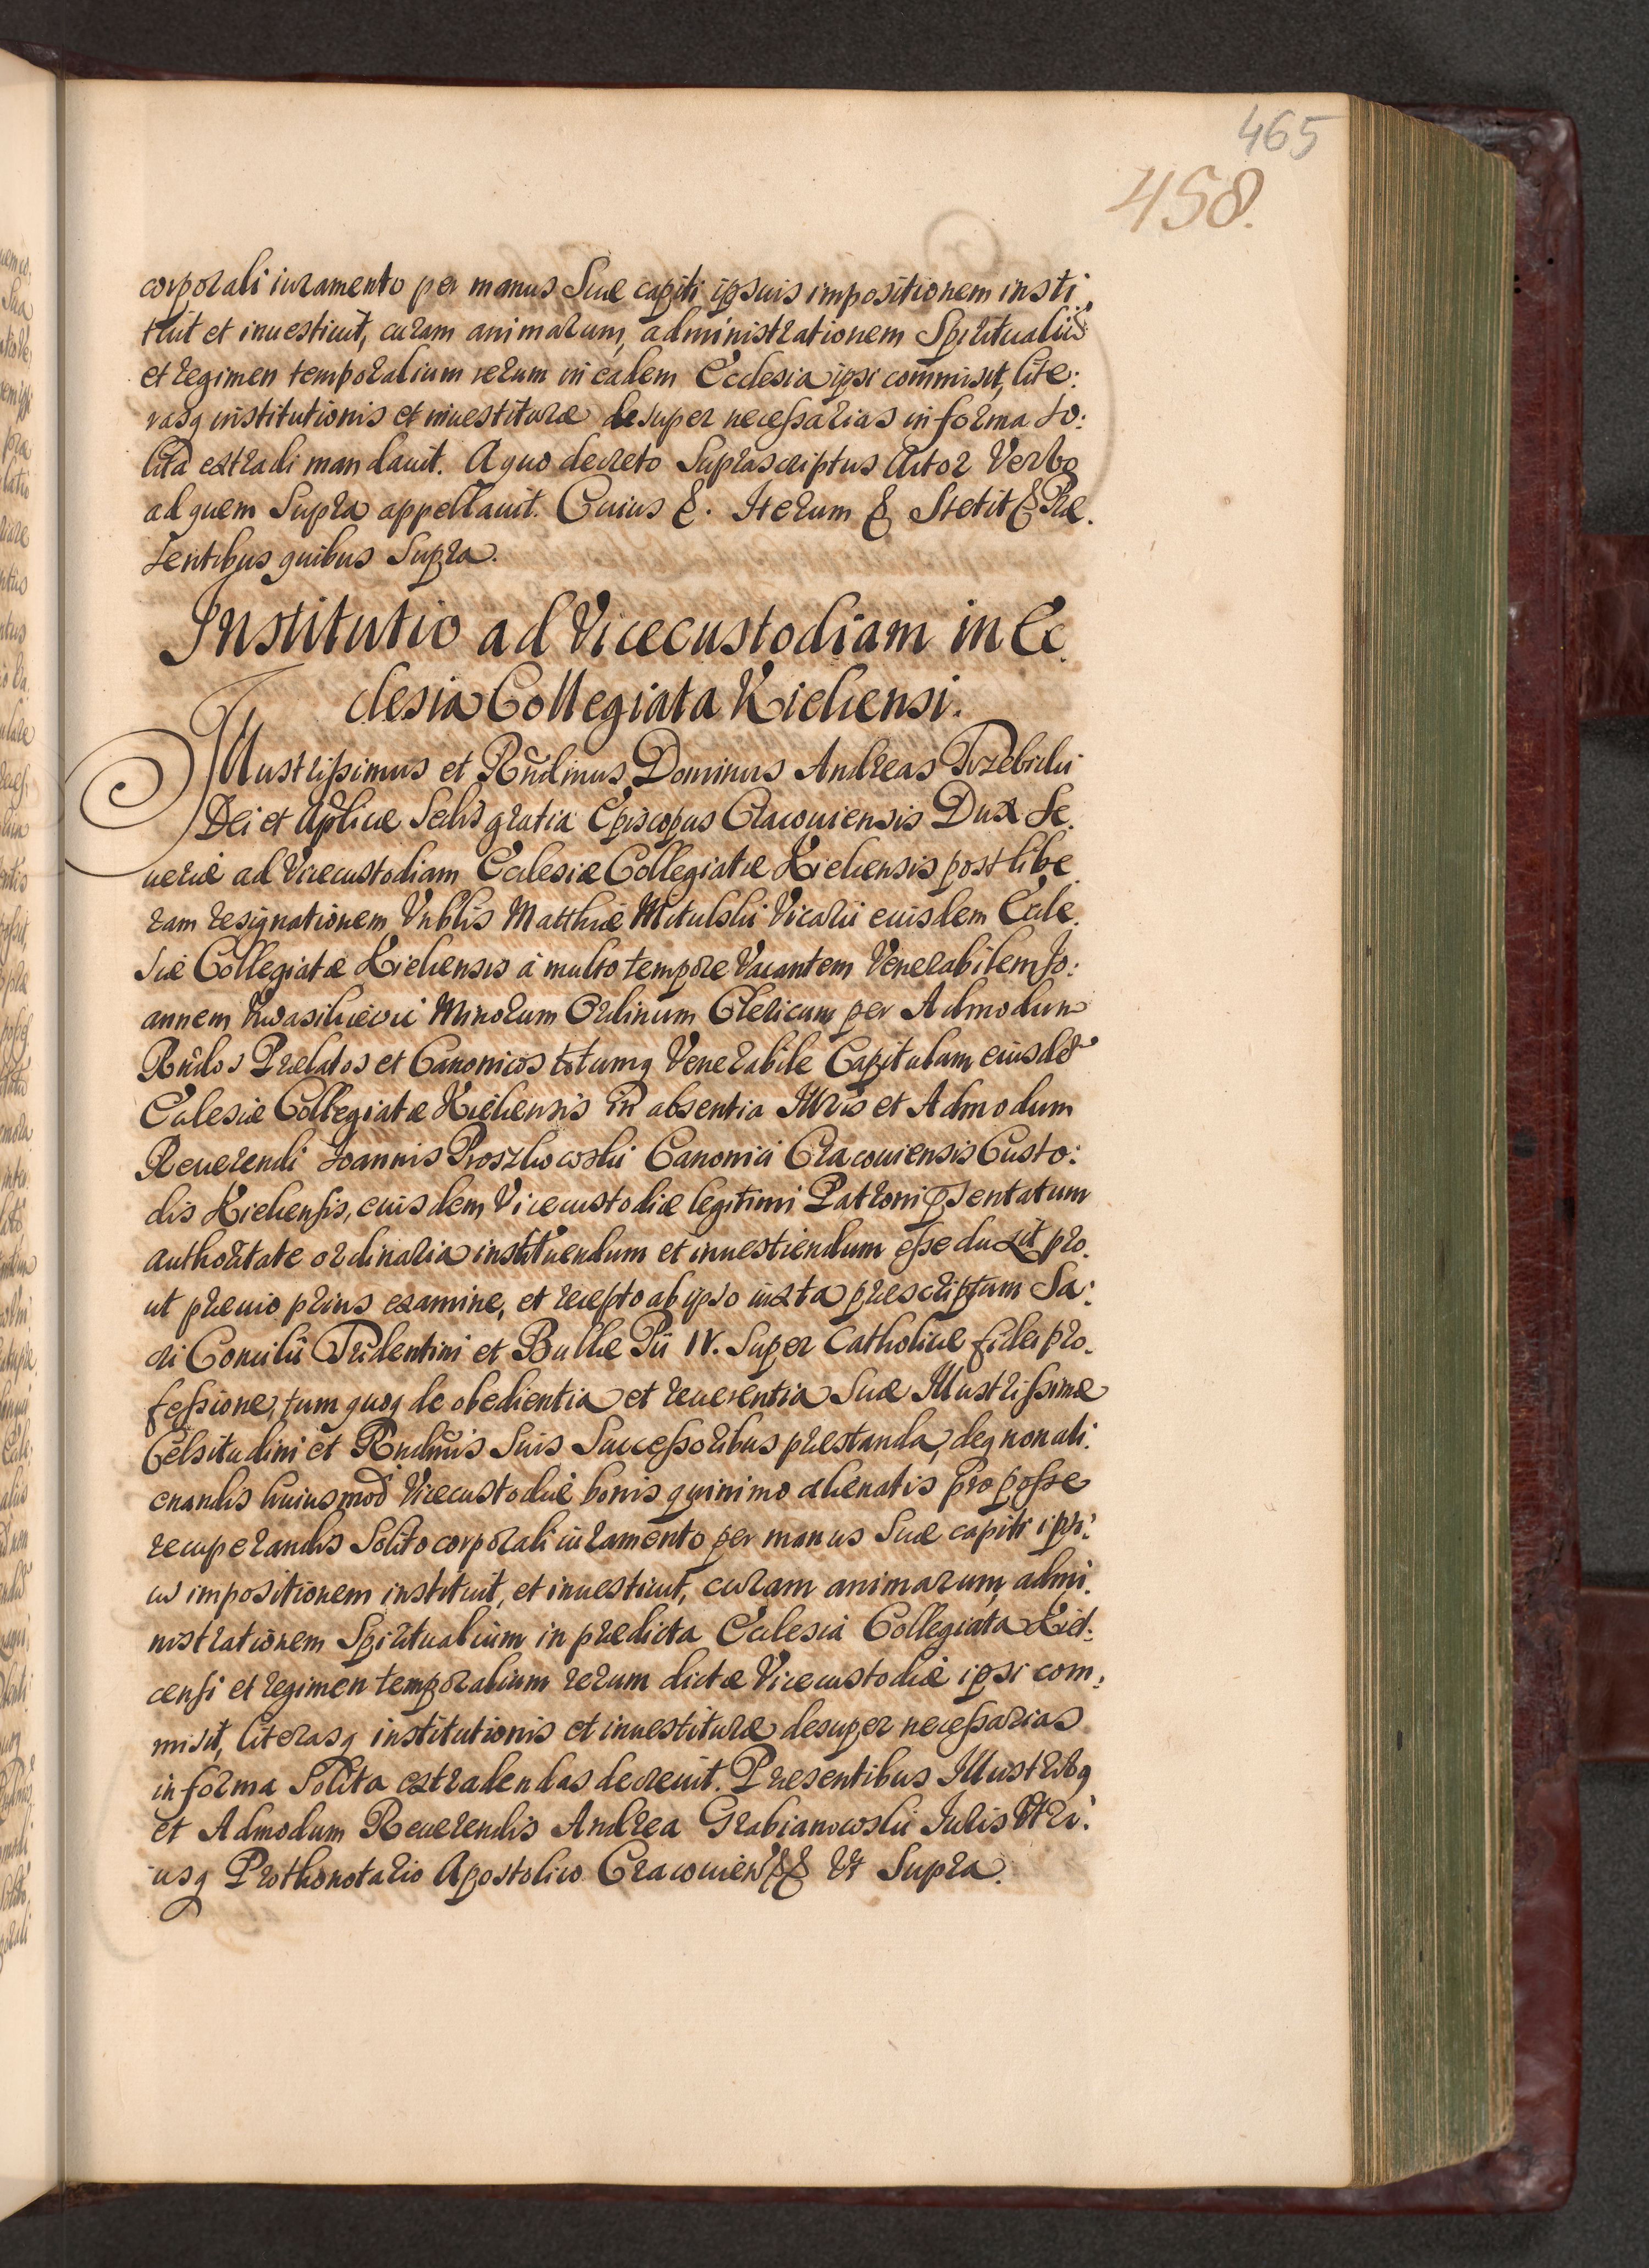 465
458.
corporali iuramento per manus Suæ capiti ipsuis impositionem insti,
tuit et inuestiuit, curam animarum, administrationem Spiritualiũ
et regimen temporalium rerum in eadem Ecclesia ipsi commisit, lite:
rasq institutionis et inuestituræ desuper necessarias in forma so:
lita extradi mandauit. A quo decreto Suprascriptus Actor Verbo
ad quem Supra appellauit. Cuius &. Iterum & Stetit & Præ.
sentibus quibus Supra.
Institutio ad Vicecustodiam in Ec
clesia Collegiata Kielcensi.
Illustrissimus et Rñdmus Dominus Andreas Trzebicki
Dei et Aplicæ Sedis gratia Episcopus Cracouiensis Dux Se.
ueriæ ad Vicecustodiam Ecclesiæ Collegiatæ Kielcensis post libe
ram resignationem Vnblis Matthiæ Mitulski Vicarii euisdem Eccle.
siæ Collegiatæ Kielcensis à multo tempore Vacantem Venerabilem Jo:
annem Kwasikiewic Minorum Ordinum Clericum per Admodum
Rñdos Prælatos et Canonicos totumq Venerabile Capitulum eiusdẽ
Ecclesiæ Collegiatæ Kielcensis in absentia Illris et Admodum
Reuerendi Joannis Proszkowski Canonici Cracouiensis Custo:
dis Kielcensis, euisdem Vicecustodiæ legitimi Patroni p̃sentatum
authoritate ordinaria instituendum et inuestiendum esse duxit pro.
ut præuio prius examine, et recepto ab ipso iuxta præscriptum Sa:
cri Concilii Tridentini et Bullæ Pii IV. Super Catholicæ fidei pro.
fessione, tum quoq de obedientia et reuerentia Suæ Illustrissimæ
Celsitudini et Rndmis Suis Successoribus præstanda, deq non ali:
enandis huiusmod Vicecustodiæ bonis quinimo alienatis pro posse
recuperandis Solito corporali iuramento per manus Suæ capiti ipsi:
us impositionem instituit, et inuestiuit, curam animarum, admi.
nistrationem Spiritualium in prædicta Ecclesia Collegiata Kiel:
censi et regimen temporalium rerum dictæ Vicecustodiæ ipsi com:
misit, literasq institutionis et inuestituræ desuper necessarias
in forma Solita extradendas decreuit. Præsentibus Illustribq
et Admodum Reuerendis Andrea Grabianowski Iuris Vtri:
usq Prothonotario Apostolico Cracouien && Vt Supra.